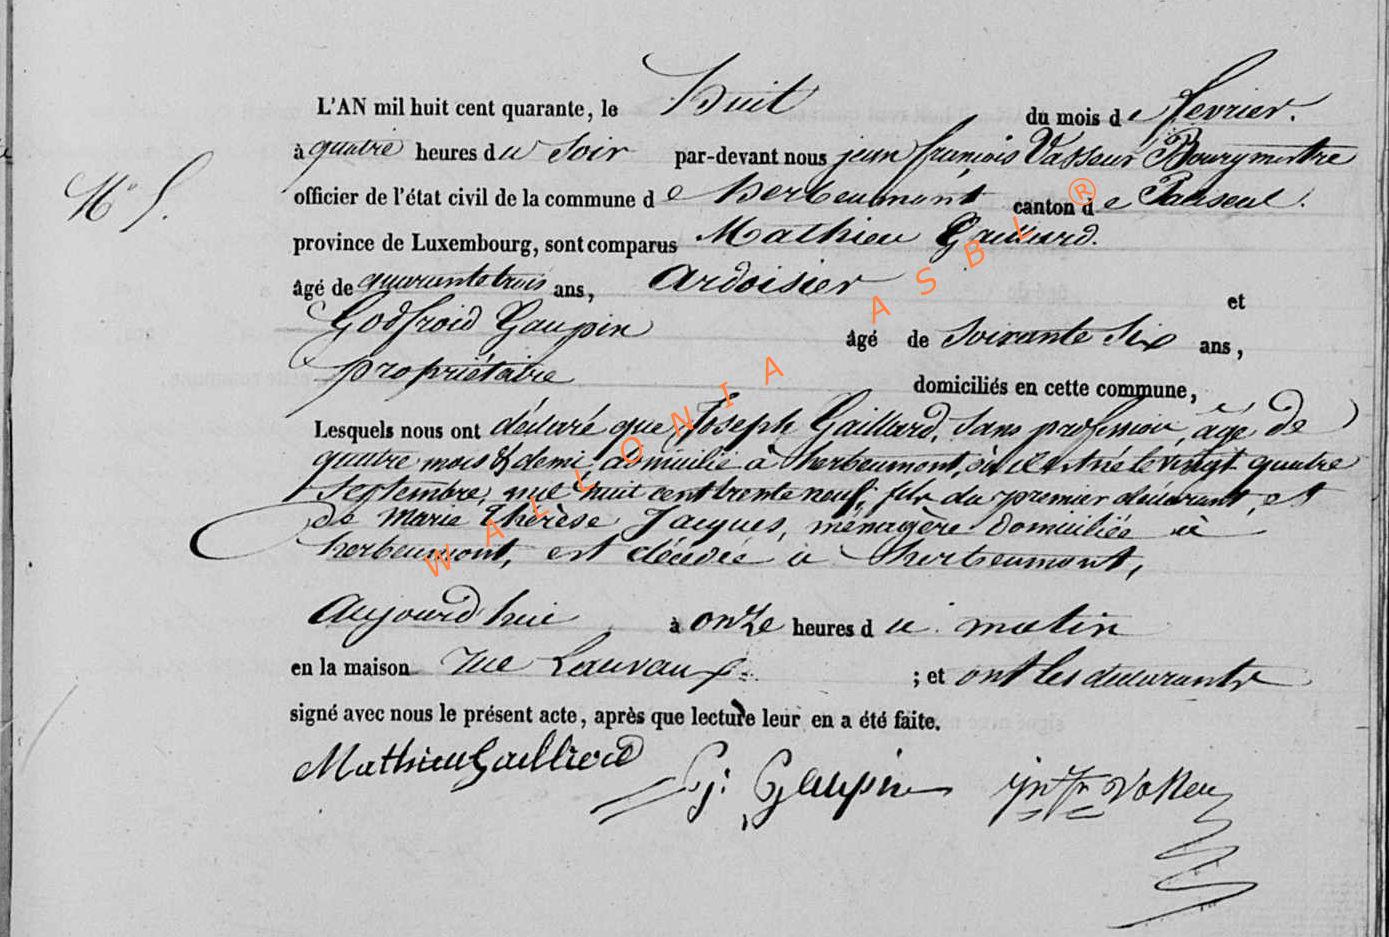 L'AN mil huit cent quarante, le huit du mois de fevrier.
à quatre heures du Soir par-devant nous jean françois Vasseur Bourgmestre
N° 5.
officier de l'état civil de la commune de herbeumont canton de Paliseul.
province de Luxembourg, sont comparus Mathieu Gaillard.
âgé de quarante trois ans, Ardoisier et
Godfroid Gaupin âgé de Soixante Six ans,
propriétaire domiciliés en cette commune,
Lesquels nous ont déclaré que Joseph Gaillard, Sans profession, âgé de
quatre mois & demi, domicilié à herbeumont, où il est né le vingt quatre
Septembre mil huit cent trente neuf, fils du premier déclarant, et
de Marie Thérèse Jacques, ménagère domiciliée à
herbeumont, est décédé à herbeumont,
Aujourd'hui à onze heures du matin
en la maison rue Lauvaux ; et ont les declarants
signé avec nous le présent acte, après que lecture leur en a été faite.
Mathieu Gailliard G: Gaupin Vasseur
WALLONIA ASBL ®